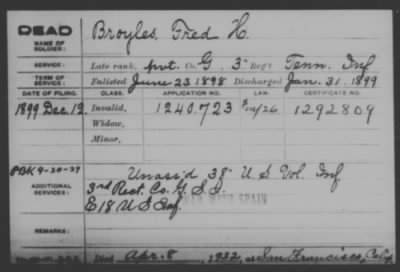 DEAD
NAME OF SOLDIER:
Broyles, Fred H.
SERVICE:
Late rank, pvt. Co. G, 3" Reg't Tenn. Inf
TERM OF SERVICE:
Enlisted June 23 1898 Discharged Jan. 31, 1899
DATE OF FILING. CLASS. APPLICATION NO. LAW. CERTIFICATE NO.
1899 Dec. 12 Invalid, 1240.723 1292809
Widow,
Minor,
9-20-39
ADDITIONAL SERVICES:
Unass'd 38" U S Vol. Inf
3rd Co. G.
E 18 U S Inf.
WAR WITH SPAIN
REMARKS:
Died Apr. 8, 1932, San Francisco,